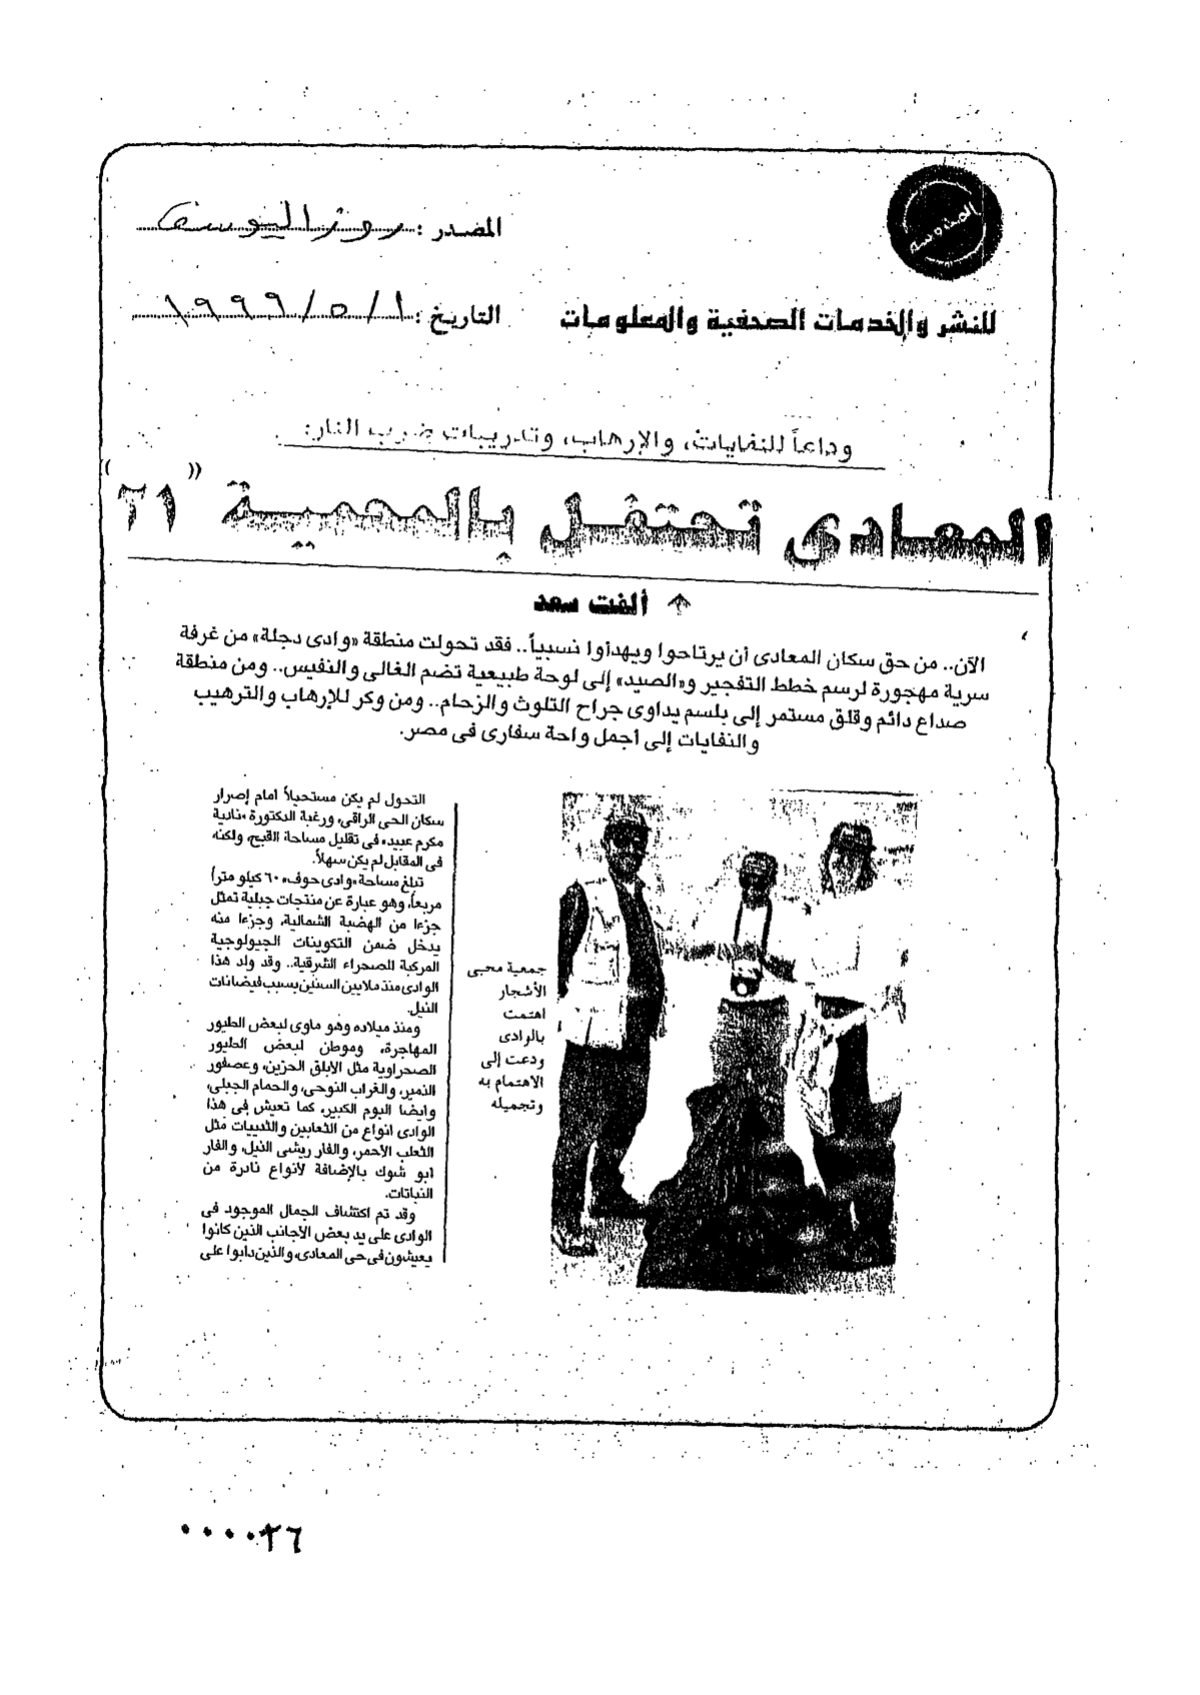 المصدر : روز اليوسف
للنشر والخدمات الصحفية والمعلومات
التاريخ : ١ / ٥ / ١٩٩٩
وداعاً للنفايات، والإرهاب، وتدريبات ضرب النار:
المعادى تحتفل بالمحمية "٢١"
ألفت سعد
الآن.. من حق سكان المعادى أن يرتاحوا ويهدأوا نسبياً.. فقد تحولت منطقة «وادى دجلة» من غرفة
سرية مهجورة لرسم خطط التفجير و«الصيد» إلى لوحة طبيعية تضم الغالى والنفيس.. ومن منطقة
صداع دائم وقلق مستمر إلى بلسم يداوى جراح التلوث والزحام.. ومن وكر للإرهاب والترهيب
والنفايات إلى أجمل واحة سفارى فى مصر.
التحول لم يكن مستحيلاً أمام إصرار
سكان الحى الراقى، ورغبة الدكتورة «نادية
مكرم عبيد» فى تقليل مساحة القبح، ولكنه
فى المقابل لم يكن سهلاً.
تبلغ مساحة «وادى حوف» ٦٠ كيلو متراً
مربعاً، وهو عبارة عن منتجات جبلية تمثل
جزءا من الهضبة الشمالية، وجزءا منه
يدخل ضمن التكوينات الجيولوجية
المركبة للصحراء الشرقية.. وقد ولد هذا
الوادى منذ ملايين السنين بسبب فيضانات
النيل.
ومنذ ميلاده وهو مأوى لبعض الطيور
المهاجرة، وموطن لبعض الطيور
الصحراوية مثل الأبلق الحزين، وعصفور
النمير، والغراب النوحى، والحمام الجبلى،
وأيضا البوم الكبير، كما تعيش فى هذا
الوادى أنواع من الثعابين والثدييات مثل
الثعلب الأحمر، والفأر ريشى الذيل، والفأر
أبو شوك بالإضافة لأنواع نادرة من
النباتات.
وقد تم اكتشاف الجمال الموجود فى
الوادى على يد بعض الأجانب الذين كانوا
يعيشون فى حى المعادى، والذين دأبوا على
جمعية محبى
الأشجار
اهتمت
بالوادى
ودعت إلى
الاهتمام به
وتجميله
٠٠٠٠٢٦